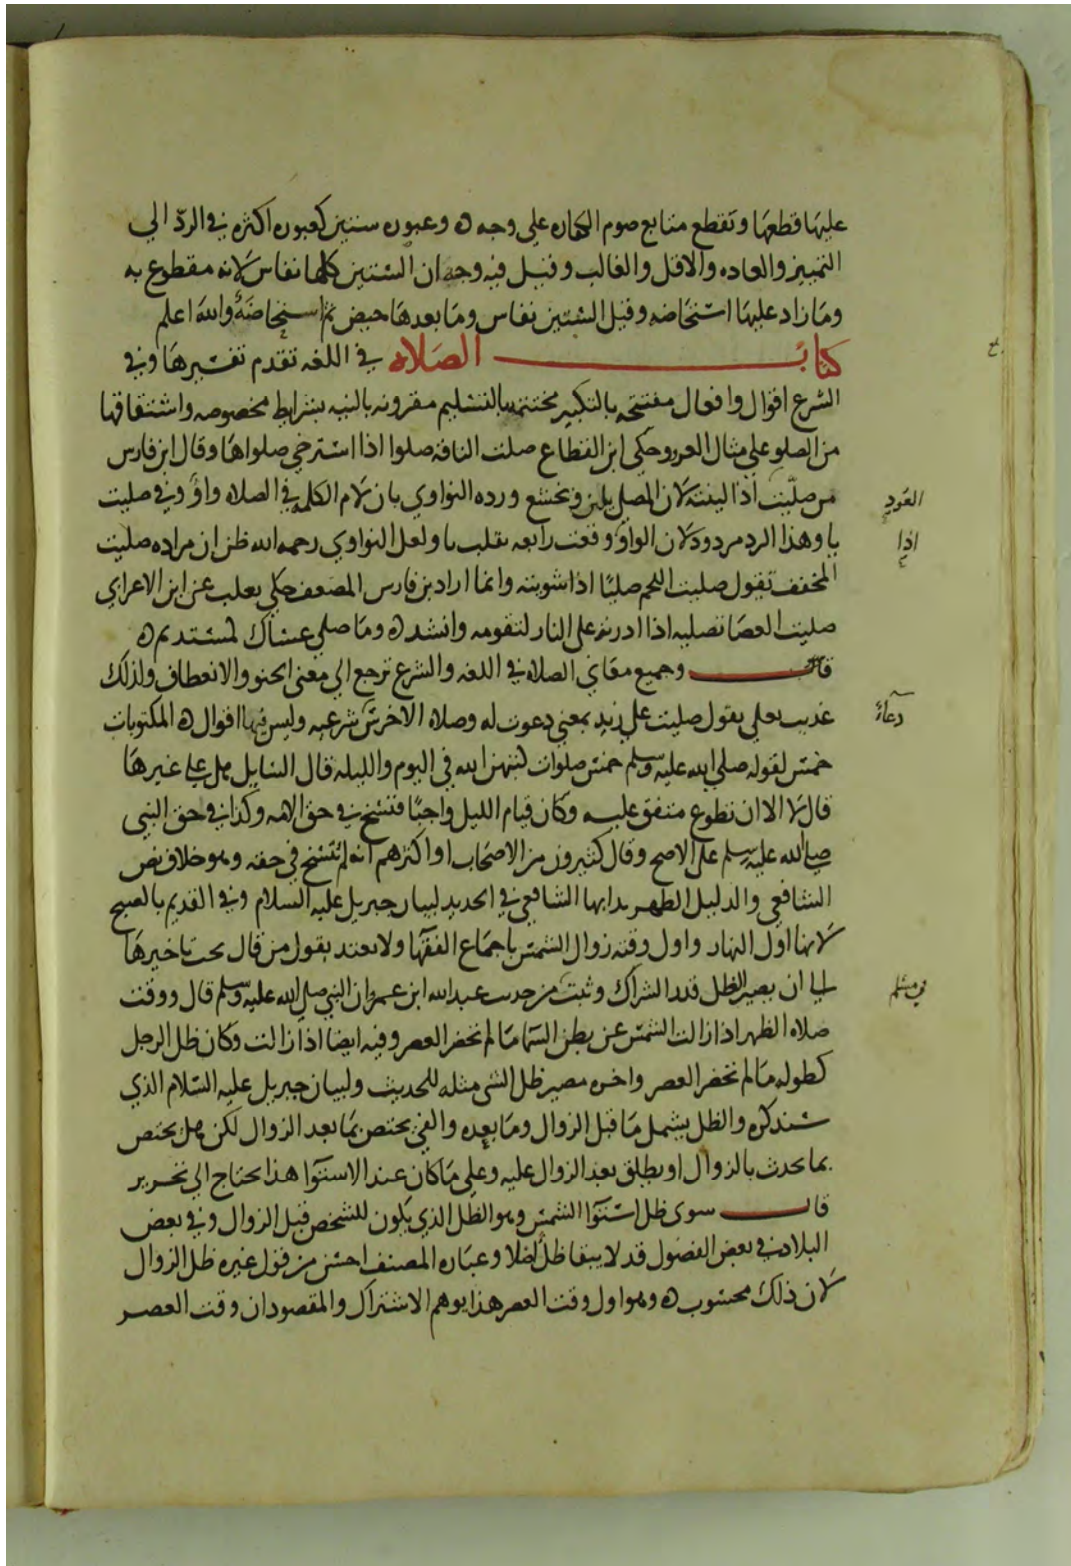 عليها قطعها وتقطع متابع صوم الكفاره علي وجه ه وعبوره ستين كعبوره اكثره في الرد الي
التمييز والعاده والاقل والغالب وقيل فيه وجه ان الستين كلها نفاس لانه مقطوع به
وما زاد عليها استحاضه وقيل الستين نفاس وما بعدها حيض ثم استحاضة والله اعلم
كتاب الصلاه في اللغه تقدم تفسيرها وفي
الشرع اقوال وافعال مفتتحه بالتكبير مختتمه بالتسليم مقرونه بالنيه بشرايط مخصوصه واشتقاقها
من الصلو علي مثال العرو وحكي ابن القطاع صلت الناقه صلوا اذا استرخي صلواها وقال ابن فارس
من صليت اذا لينته لان المصلي يلين ويخشع ورده النواوي بان لام الكلمه في الصلاه واو وفي صليت
العود
يا وهذا الرد مردود لان الواو وقعت رابعه بقلب يا ولعل النواوي رحمه الله ظن ان مراده صليت
اذا
المخفف تقول صليت اللحم صليا اذا شويته وانما اراد بن فارس المضعف حكي ثعلب عن ابن الاعرابي
صليت العصا تصليه اذا ادرته علي النار لتقومه وانشد ه وما صلي عصاك كمستديم ه
قال وجميع معاني الصلاه في اللغه والشرع ترجع الي معني الحنو والانعطاف ولذلك
عديت بعلي يقول صليت علي زيد بمعني دعوت له وصلاه الاخرس شرعيه وليس فيها اقوال ه المكتوبات
دعاء
خمس لقوله صلي الله عليه وسلم خمس صلوات كتبهن الله في اليوم والليله قال السايل هل علي غيرها
قال لا الا ان تطوع متفق عليه وكان قيام الليل واجبا فنسخ في حق الامه وكذا في حق النبي
صلي الله عليه وسلم علي الاصح وقال كثيرون من الاصحاب او اكثرهم انه لم ينسخ في حقه وهو خلاف نص
الشافعي والدليل الظهر بدا بها الشافعي في الجديد لبيان جبريل عليه السلام وفي القديم بالصبح
لانها اول النهار واول وقته زوال الشمس باجماع الفقها ولا يعتد بقول من قال يحب تاخيرها
الي ان يصير الظل قدر الشراك وثبت من حديث عبد الله ابن عمرو ان النبي صلي الله عليه وسلم قال ووقت
في مسلم
صلاه الظهر اذا زالت الشمس عن بطن السما ما لم تحضر العصر وفيه ايضا اذا زالت وكان ظل الرجل
كطوله ما لم تحضر العصر واخره مصير ظل الشي مثله للحديث ولبيان جبريل عليه السلام الذي
سنذكره والظل يشمل ما قبل الزوال وما بعده والفي يختص بما بعد الزوال لكن هل يختص
بما يحدث بالزوال او يطلق بعد الزوال عليه وعلي ما كان عند الاستوا هذا يحتاج الي تحرير
قال سوي ظل استوا الشمس وهو الظل الذي يكون للشخص قبل الزوال وفي بعض
البلاد في بعض الفصول قد لا يبقا ظل اصلا وعباره المصنف احسن من قول غيره ظل الزوال
لان ذلك محسوب ه وهو اول وقت العصر هذا يوهم الاشتراك والمقصود ان وقت العصر